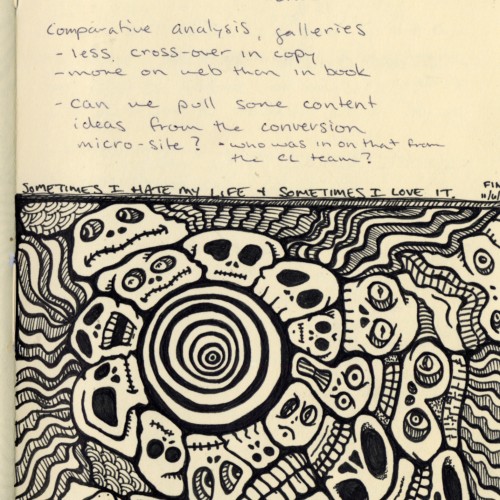 Comparative analysis, galleries
- less cross-over in copy
- more on web than in book
- can we pull some content
ideas from the conversion
micro-site? • who was in on that from
the CL team?
SOMETIMES I HATE MY LIFE + SOMETIMES I LOVE IT.